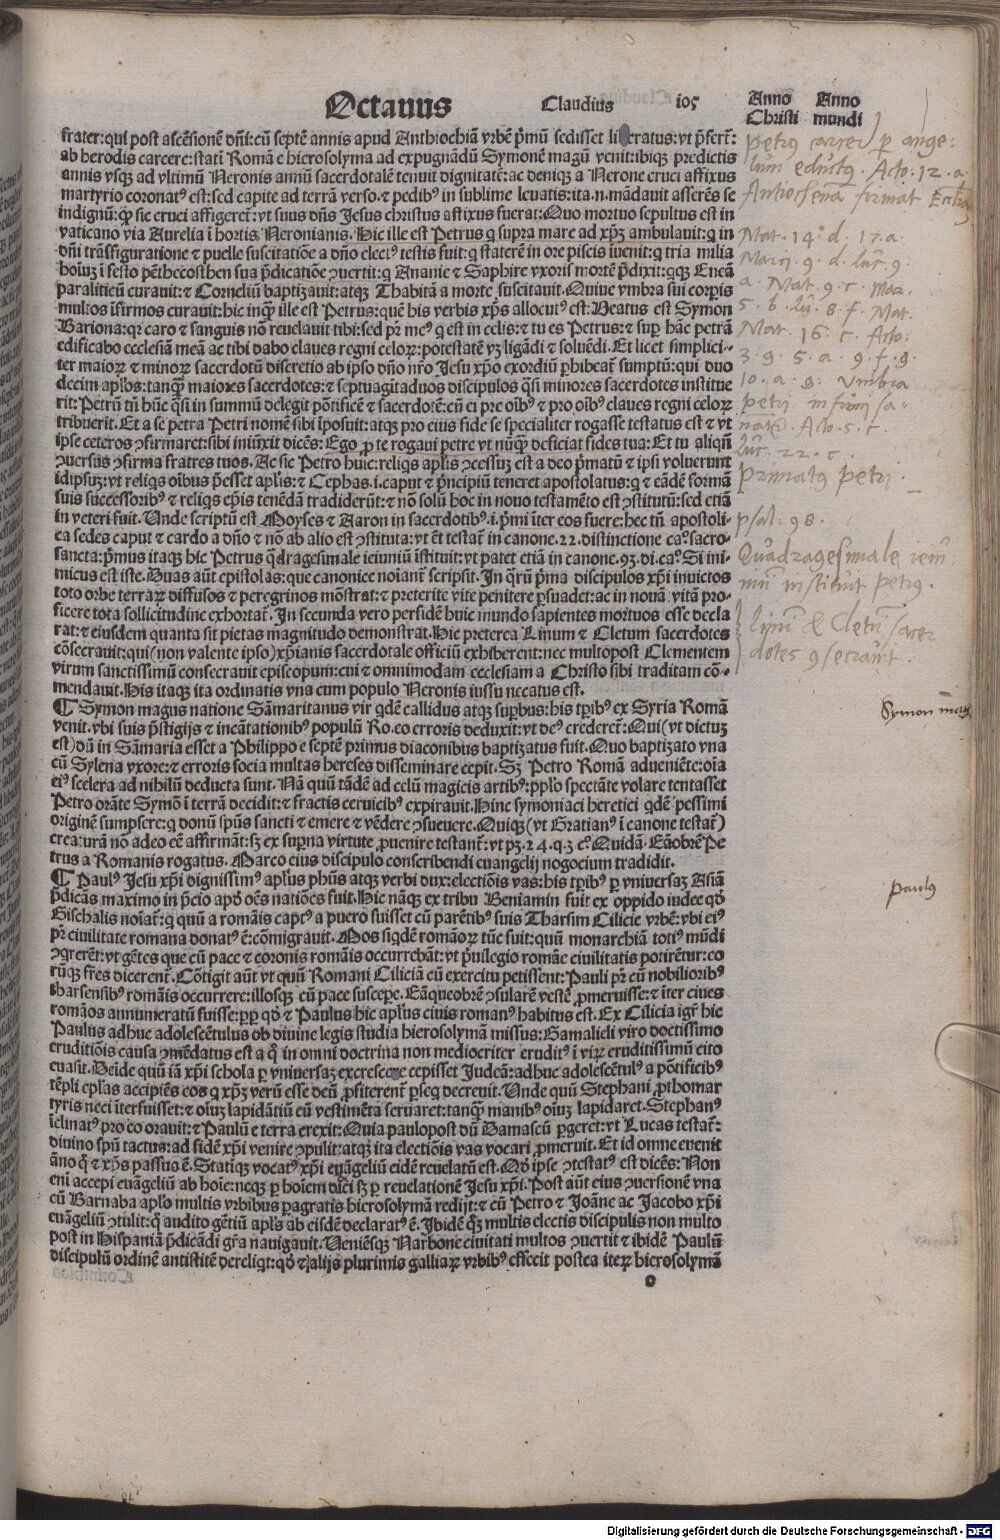 Octauus Claudius 105 Anno Christi Anno mundi
frater: qui post ascẽsionẽ dñi: cũ septẽ annis apud Anthiochiã vrbẽ p̃mũ sedisset li eratus: vt p̃fert̃:
ab herodis carcere: statĩ Romã e hierosolyma ad expugnãdũ Symonẽ magũ venit: ibiqꝫ predictis
annis vsqꝫ ad vltimũ Neronis annũ sacerdotalẽ tenuit dignitatẽ: ac deniqꝫ a Nerone cruci affixus
martyrio coronatꝰ est: sed capite ad terrã verso. ⁊ pedibꝰ in sublime leuatis: ita.n. mãdauit asserẽs se
indignũ: ꝙ sic cruci affigeret̃: vt suus dñs Jesus christus afixus fuerat: Quo mortuo sepultus est in
vaticano via Aurelia ĩ hortis Neronianis. Hic ille est Petrus ꝗ supra mare ad xp̃ꝫ ambulauit: ꝗ in
dñi trãsfiguratione ⁊ puelle suscitatiõe a dño electꝰ testis fuit: ꝗ staterẽ in ore piscis ĩuenit: ꝗ tria milia
hoĩuꝫ ĩ sesto pẽthecosthen sua p̃dicatiõe ↄuertit: ꝗ Ananie ⁊ Saphire vxoris mortẽ p̃dixit: ꝗqꝫ Eneã
paraliticũ curauit: ⁊ Corneliũ baptizauit: atqꝫ Thabitã a morte suscitauit. Quiue vmbra sui corpis
multos ĩfirmos curauit: hic inqꝫ ille est Petrus: quẽ his verbis xp̃s allocutꝰ est: Beatus est Symon
Bariona: qꝛ caro ⁊ sanguis nõ reuelauit tibi: sed pr̃ meꝰ ꝗ est in celis: ⁊ tu es Petrus: ⁊ sup hãc petrã
edificabo ecclesiã meã ac tibi dabo claues regni celoꝝ: potestatẽ vꝫ ligãdi ⁊ soluẽdi. Et licet simplici-
ter maioꝝ ⁊ minoꝝ sacerdotũ discretio ab ipso dño nr̃o Jesu xp̃o exordiũ ꝑhibeat̃ sumptũ: qui duo
decim apl̃os: tanꝙ̃ maiores sacerdotes: ⁊ septuagĩtaduos discipulos q̃si minores sacerdotes institue
rit: Petrũ tñ hũc q̃si in summũ delegit põtificẽ ⁊ sacerdotẽ: cũ ei pre oĩbꝰ ⁊ pro oĩbꝰ claues regni celoꝝ
tribuerit. Et a se petra Petri nomẽ sibi ĩposuit: atqꝫ pro eius fide se specialiter rogasse testatus est ⁊ vt
ipse ceteros ↄfirmaret: sibi iniũxit dicẽs: Ego ꝓ te rogaui petre vt nũꝙ̃ deficiat fides tua: Et tu aliqñ
ↄuersus ↄfirma fratres tuos. Ac sic Petro huic: reliq̃s apl̃is ↄcessuꝫ est a deo p̃matũ ⁊ ipsi voluerunt
idipsuꝫ: vt reliq̃s oĩbus p̃esset apl̃is: ⁊ Cephas .i. caput ⁊ p̃ncipiũ teneret apostolatus: ꝗ ⁊ eãdẽ formã
suis successoribꝰ ⁊ reliq̃s ep̃is tenẽdã tradiderũt: ⁊ nõ solũ hoc in nouo testamẽto est ↄstitutũ: sed etiã
in veteri fuit. Unde scriptũ est Moyses ⁊ Aaron in sacerdotibꝰ .i. p̃mi ĩter eos fuere: hec tñ apostoli-
ca sedes caput ⁊ cardo a dño ⁊ nõ ab alio est ↄstituta: vt ẽt testat̃ in canone.22. distinctione ca.° sacro-
sancta: p̃mus itaqꝫ hic Petrus q̃dragesimale ieiuniũ ĩstituit: vt patet etiã in canone.93. di. ca.° Si ini-
micus est iste. Duas aũt epistolas: que canonice noĩant̃ scripsit. In q̃rũ p̃ma discipulos xp̃i inuictos
toto orbe terraꝝ diffusos ⁊ peregrinos mõstrat: ⁊ preterite vite penitere ꝑsuadet: ac in nouã: vitã pro-
ficere tota sollicitudine exhortat̃. In secunda vero perfidẽ huic mundo sapientes mortuos esse decla
rat: ⁊ eiusdem quanta sit pietas magnitudo demonstrat. Hic preterea Linum ⁊ Cletum sacerdotes
cõsecrauit: qui (non valente ipso) xp̃ianis sacerdotale officiũ exhiberent: nec multopost Clementem
virum sanctissimũ consecrauit episcopum: cui ⁊ omnimodam ecclesiam a Christo sibi traditam cõ-
mendauit. His itaqꝫ ita ordinatis vna cum populo Neronis iussu necatus est.
¶ Symon magus natione Sãmaritanus vir q̃dẽ callidus atqꝫ supbus: his tp̃ibꝰ ex Syria Romã
venit. vbi suis p̃stigijs ⁊ incãtationibꝰ populũ Ro. eo erroris deduxit: vt deꝰ crederet̃: Qui (vt dictuꝫ
est) dũ in Sãmaria esset a Philippo e septẽ primus diaconibus baptizatus fuit. Quo baptizato vna
cũ Sylena vxore: ⁊ erroris socia multas hereses disseminare cepit. Sꝫ Petro Romã adueniẽte: oĩa
eiꝰ scelera ad nihilũ deducta sunt. Nã quũ tãdẽ ad celũ magicis artibꝰ: pp̃lo spectãte volare tentasset
Petro orãte Symõ ĩ terrã decidit: ⁊ fractis ceruicibꝰ expirauit. Hinc symoniaci heretici q̃dẽ pessimi
originẽ sumpsere: ꝗ donũ sp̃us sancti ⁊ emere ⁊ vẽdere ↄsueuere. Quiqꝫ (vt Gratianꝰ ĩ canone testat̃)
creaturã nõ adeo eẽ affirmãt: sꝫ ex supna virtute ꝓuenire testant̃: vt pꝫ. 24. q. 3. c° Quidã. Eaobrẽ Pe
trus a Romanis rogatus. Marco eius discipulo conscribendi euangelij nogocium tradidit.
¶ Paulꝰ Jesu xp̃i dignissimꝰ apl̃us ph̃us atqꝫ verbi dux: electiõis vas: his tp̃ibꝰ ꝑ vniuersaꝫ Asiã
p̃dicãs maximo in p̃cio apð oẽs natiões fuit. Hic nãqꝫ ex tribu Beniamin fuit ex oppido iudee qð
Gischalis noĩat̃: ꝗ quũ a romãis captꝰ a puero fuisset cũ parẽtibꝰ suis Tharsim Cilicie vrbẽ: vbi eiꝰ
pr̃ ciuilitate romana donatꝰ ẽ: cõmigrauit. Mos siq̃dẽ romãoꝝ tũc fuit: quũ monarchiã totiꝰ mũdi
ↄgrerẽt: vt gẽtes que cũ pace ⁊ coronis romãis occurrebãt: vt p̃uilegio romãe ciuilitatis potirẽtur: eo
rũqꝫ fr̃es dicerent̃. Cõtigit aũt vt quũ Romani Ciliciã cũ exercitu petissent: Pauli pr̃ cũ nobilioribꝰ
tharsensibꝰ romãis occurrere: illosqꝫ cũ pace suscepe. Eãqueobrẽ ↄsularẽ vestẽ ꝓmeruisse: ⁊ ĩter ciues
romãos annumeratũ fuisse: ꝓp qð ⁊ Paulus hic apl̃us ciuis romanꝰ habitus est. Ex Cilicia igr̃ hic
Paulus adhuc adolescẽtulus ob diuine legis studia hierosolymã missus: Gamalieli viro doctissimo
eruditiõis causa ↄmẽdatus est a q̃ in omni doctrina non mediocriter eruditꝰ ĩ virꝫ eruditissimũ cito
euasit. Deĩde quũ iã xp̃i schola ꝑ vniuersaꝫ excrescere cepisset Judeã: adhuc adolescẽtulꝰ a põtificibꝰ
tẽpli ep̃las accipiẽs eos ꝗ xp̃ꝫ verũ esse deũ ꝓfiterent̃ ꝑseq̃ decreuit. Unde quũ Stephani ꝓthomar
tyris neci ĩterfuisset: ⁊ oĩuꝫ lapidãtiũ cũ vestimẽta seruaret: tanꝙ̃ manibꝰ oĩuꝫ lapidaret. Stephanꝰ
ĩclinatꝰ pro eo orauit: ⁊ Paulũ e terra erexit: Quia paulopost dũ Damascũ ꝑgeret: vt Lucas testat̃:
diuino sp̃u tactus: ad fidẽ xp̃i venire ↄpulit: atqꝫ ita electiõis vas vocari ꝓmeruit. Et id omne euenit
ãno q̃ ⁊ xp̃s passus ẽ. Statiqꝫ vocatꝰ xp̃i euãgeliũ eidẽ reuelatũ est. Qð ip̃se ↄtestatꝰ est dicẽs: Non
eni accepi euãgeliũ ab hoĩe: neqꝫ ꝑ hoĩem didici sꝫ ꝑ reuelationẽ Jesu xp̃i. Post aũt eius ↄuersionẽ vna
cũ Barnaba apl̃o multis vrbibus ꝑagratis hierosolymã redijt: ⁊ cũ Petro ⁊ Joãne ac Jacobo xp̃i
euãgeliũ ↄtulit: q̃ audito gẽtiũ apl̃s ab eisdẽ declaratꝰ ẽ. Ibidẽ q̃ꝫ multis electis discipulis non multo
post in Hispaniã p̃dicãdi gr̃a nauigauit. Ueniẽsqꝫ Narbone ciuitati multos ↄuertit ⁊ ibidẽ Paulũ
discipulũ ordinẽ antistitẽ dereliq̃t: qð ⁊ alijs plurimis galliaꝝ vrbibꝰ effecit postea iteꝝ hierosolymã
o
petrꝰ carcer ꝑ ange:
lum eductꝰ. Acto: 12. a
Anthochenã format Eccl̃iã
Mat. 14. d. 17. a.
Marci. 9. d. luc. 9.
a. Mat. 9. c. Mar.
5. b. lu. 8. f. Mat.
Mat. 16. c. Acto:
3. 9. 5. a. 9. f. g.
10. a. g. vmbra
petri infirmi sa-
nati. Acto. 5. c.
luc. 22. c.
primatꝰ petri.
psal. 98.
Quadragesimale ieiu
niũ instituit petrꝰ.
lynũ & Cletũ sacer
dotes ↄsecrauit.
Symon mag
paulꝰ
Digitalisierung gefördert durch die Deutsche Forschungsgemeinschaft - DFG